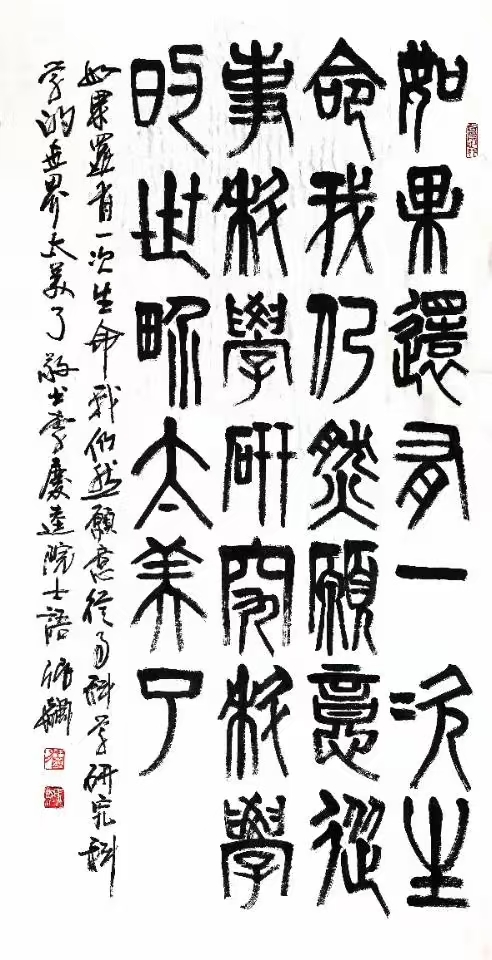 如果還有一次生
命我仍然願意從
事科學研究科學
的世界太美了
如果還有一次生命我仍然願意從事科学研究科
学的世界太美了敬书李慶逵院士語